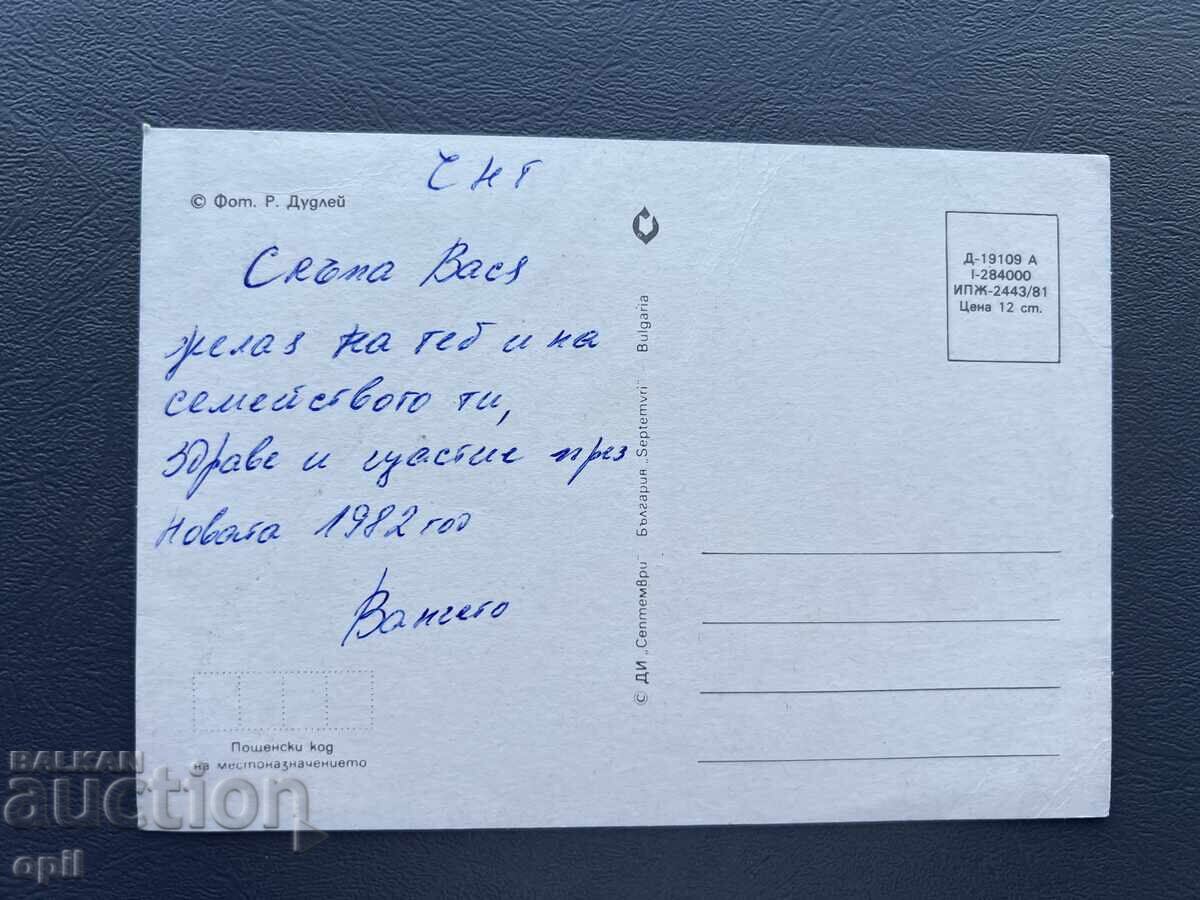 ЧНГ
© Фот. Р. Дудлей
Скъпа Вася
желая на теб и на
семейството ти,
здраве и щастие през
Новата 1982 год
Ванчето
Пощенски код
на местоназначението
© ДИ „Септември" България „Septemvri" Bulgaria
Д-19109 А
I-284000
ИПЖ-2443/81
Цена 12 ст.
BALKAN
auction
opil